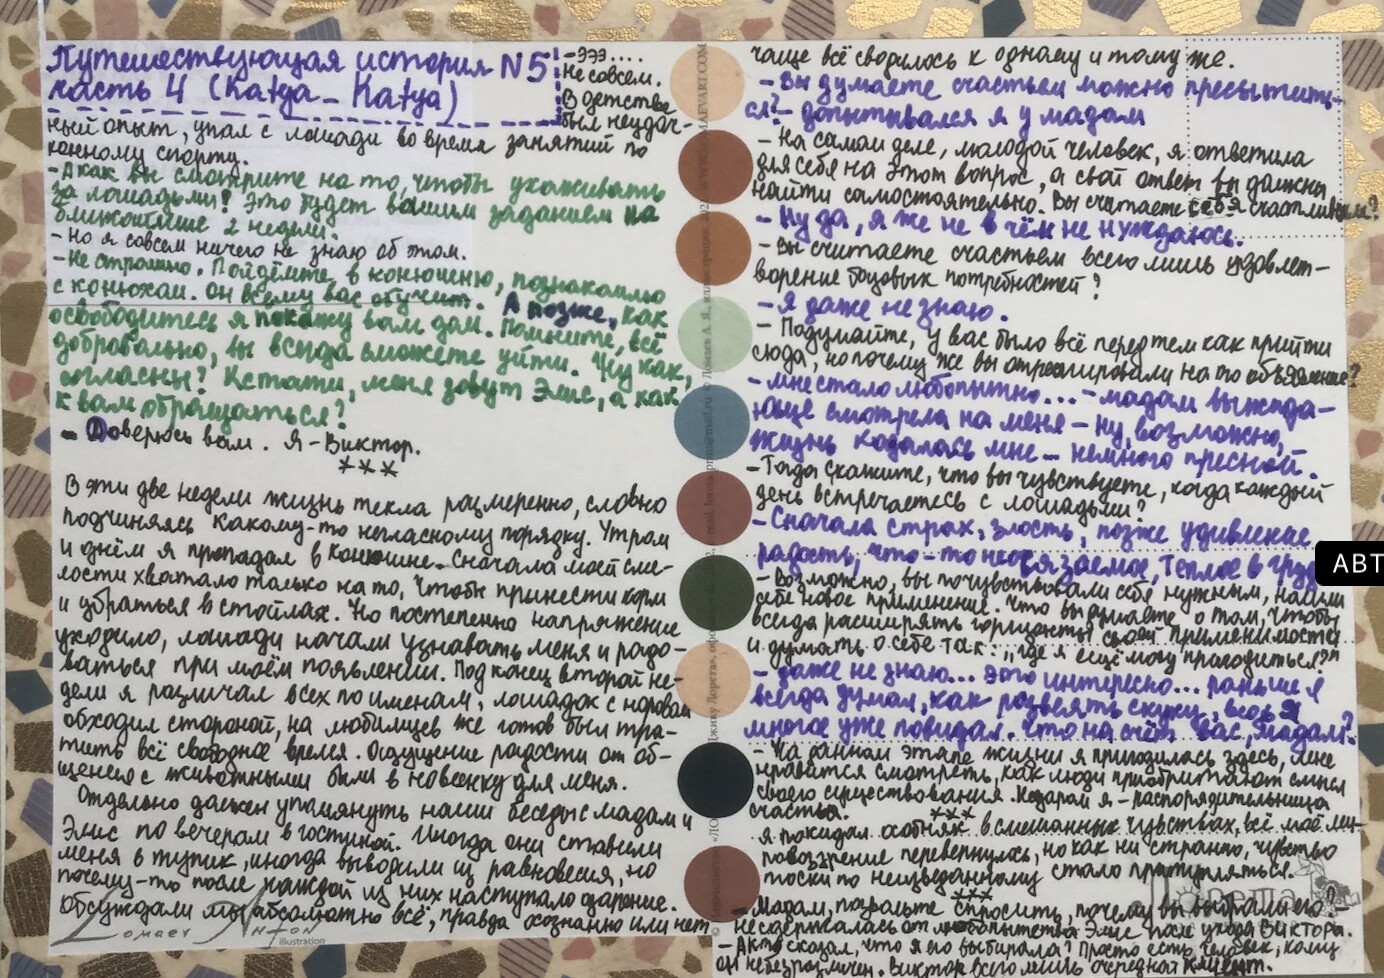 Путешествующая история N5
часть 4 (Katya_Katya)
-Эээ....
Не совсем.
В детстве
был неудач-
ный опыт, упал с лошади во время занятий по
конному спорту.
-А как вы смотрите на то, чтобы ухаживать
за лошадьми? Это будет вашим заданием на
ближайшие 2 недели.
- Но я совсем ничего не знаю об этом.
-Не страшно. Пойдёмте в конюшню, познакомлю
с конюхом. Он всему вас обучит. А позже, как
освободитесь я покажу вам дом. Помните, всё
добровольно, вы всегда сможете уйти. Ну как,
согласны? Кстати, меня зовут Элис, а как
к вам обращаться?
- Доверюсь вам. Я - Виктор.
***
В эти две недели жизнь текла размеренно, словно
подчиняясь какому-то негласному порядку. Утром
и днём я пропадал в конюшне. Сначала моей сме-
лости хватало только на то, чтобы принести корм
и убраться в стойлах. Но постепенно напряжение
уходило, лошади начали узнавать меня и радо-
ваться при моём появлении. Под конец второй не-
дели я различал всех по именам, лошадок с норовом
обходил стороной, на любимцев же готов был тра-
тить всё свободное время. Ощущение радости от об-
щения с животными были в новинку для меня.
Отдельно должен упомянуть наши беседы с мадам
Элис по вечерам в гостиной. Иногда они ставили
меня в тупик, иногда выводили из равновесия, но
почему-то после каждой из них наступало озарение.
Обсуждали мы абсолютно всё, правда осознанно или нет
чаще всё сводилось к одному и тому же.
- Вы думаете счастьем можно пресытить-
ся? - допытывался я у мадам
- На самом деле, молодой человек, я ответила
для себя на этот вопрос, а свой ответ вы должны
найти самостоятельно. Вы считаете себя счастливым?
- Ну да, я же не в чём не нуждаюсь.
- Вы считаете счастьем всего лишь удовлет-
ворение базовых потребностей?
- Я даже не знаю.
- Подумайте, у вас было всё перед тем как прийти
сюда, но почему же вы отреагировали на то объявление?
- мне стало любопытно... - мадам выжида-
юще смотрела на меня - ну, возможно,
жизнь казалась мне - немного пресной.
-Тогда скажите, что вы чувствуете, когда каждый
день встречаетесь с лошадьми?
- Сначала страх, злость, позже удивление
радость, что-то неосязаемое, тёплое в груди
- Возможно, вы почувствовали себя нужным, нашли
себе новое применение. Что вы думаете о том, чтобы
всегда расширять горизонты своей применимости
и думать о себе так: "где я ещё могу пригодиться?"
- даже не знаю... это интересно... раньше я
всегда думал, как развеять скуку, ведь я
многое уже повидал. Что на счёт вас, Мадам?
- На данном этапе жизни я пригодилась здесь, мне
нравится смотреть, как люди приобретают смысл
своего существования. Недаром я - распорядительница
счастья.
***
Я покидал особняк в смешанных чувствах, всё моё ми-
ровоззрение перевернулось, но как ни странно, чувство
тоски по неизведанному стало притупляться.
***
- Мадам, позвольте спросить, почему вы выбрали его? -
не сдержалась от любопытства Элис после ухода Виктора.
- А кто сказал, что я его выбирала? Просто есть человек, кому
он небезразличен. Виктор всего лишь очередной клиент.
Lomaev Anton
illustration
АВТ